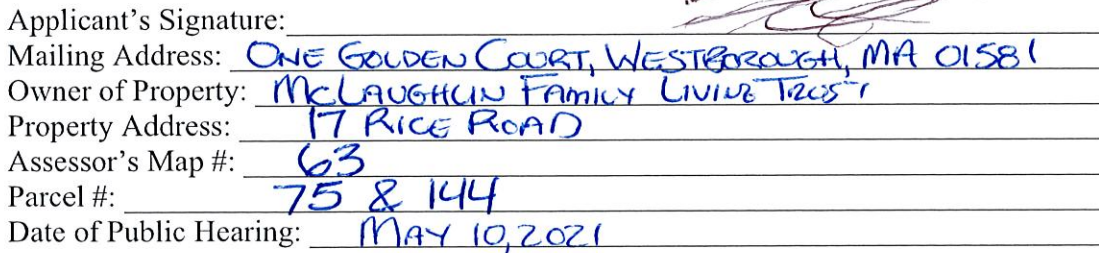 Applicant's Signature:
Mailing Address: ONE GOLDEN COURT, WESTBOROUGH, MA 01581
Owner of Property: MCLAUGHLIN FAMILY LIVING TRUST
Property Address: 17 RICE ROAD
Assessor's Map #: 63
Parcel #: 75 & 144
Date of Public Hearing: MAY 10, 2021